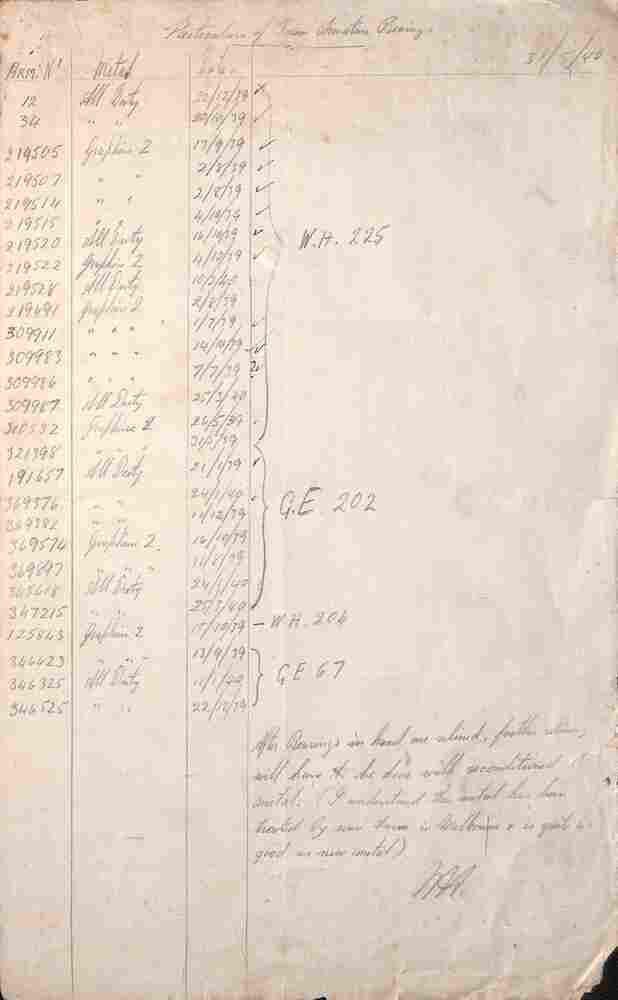 Particulars of Tram Armature Bearings
31/5/40
Arm. No Metal Date
12 All Duty 22/12/39 ✓
34 " " 20/10/39 ✓
219505 Graphine 2 17/9/39 ✓
219507 " " 2/8/39 ✓
219514 " " 2/8/39 ✓
219515 " " 4/10/39 ✓
219520 All Duty 16/10/39 ✓
219522 Graphine 2 4/10/39 ✓
219528 All Duty 10/3/40
219691 Graphine 2 2/8/39
309911 " " " 1/7/39 ✓
309983 " " " 14/10/39 ✓
309986 " " " 7/7/39
309987 All Duty 25/3/40
310532 Graphine 2 26/5/39
321398 " " "
191657 All Duty 21/1/39 ✓
369376 " " 24/1/40
369382 " " 11/12/39
369574 Graphine 2. 16/10/39
369897 " " " 11/8/39
345618 All Duty 24/3/40
347215 " " 25/3/40
125843 Graphine 2 15/10/39 — W.H. 204
346423 " " 13/9/39
346325 All Duty 11/1/40
346525 " " 22/12/39
W.H. 225
G.E. 202
G.E 67
After Bearings in hand are relined, further
will have to be done with reconditioned
metal. (I understand the metal has been
treated by some firm in Melbourne & is quite as
good as new metal)